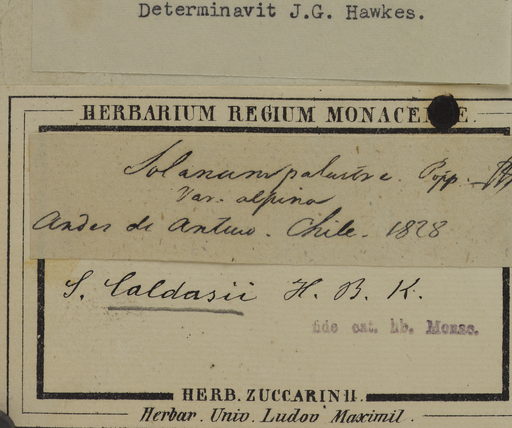 Determinavit J.G. Hawkes.
HERBARIUM REGIUM MONACENSE.
Solanum palustre. Popp.
Var. alpina
Andes de Antuco. Chile. 1828
S. Caldasii H. B. K.
fide cat. hb. Monac.
HERB. ZUCCARINII.
Herbar. Univ. Ludov Maximil.